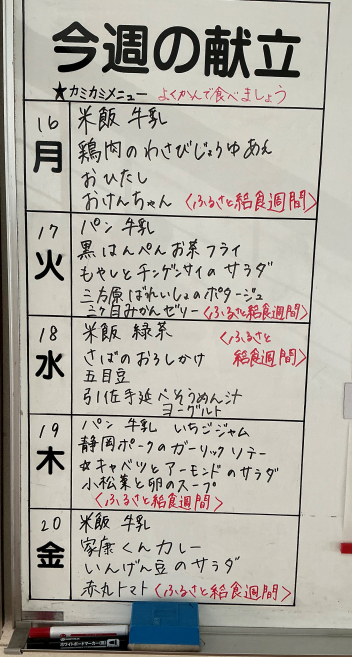 今週の献立
★カミカミメニュー よくかんで食べましょう
16
月
米飯 牛乳
鶏肉のわさびじょうゆあん
おひたし
おけんちゃん 〈ふるさと給食週間〉
17
火
パン 牛乳
黒はんぺんお茶フライ
もやしとチンゲンサイのサラダ
三方原ばれいしょのポタージュ
三ヶ日みかんゼリー 〈ふるさと給食週間〉
18
水
米飯 緑茶 〈ふるさと
給食週間〉
さばのおろしかけ
五目豆
引佐手延べそうめん汁
ヨーグルト
19
木
パン 牛乳 いちごジャム
静岡ポークのガーリックソテー
☆キャベツとアーモンドのサラダ
小松菜と卵のスープ
〈ふるさと給食週間〉
20
金
米飯 牛乳
家康くんカレー
いんげん豆のサラダ
赤丸トマト 〈ふるさと給食週間〉
ホワイトボードマーカー